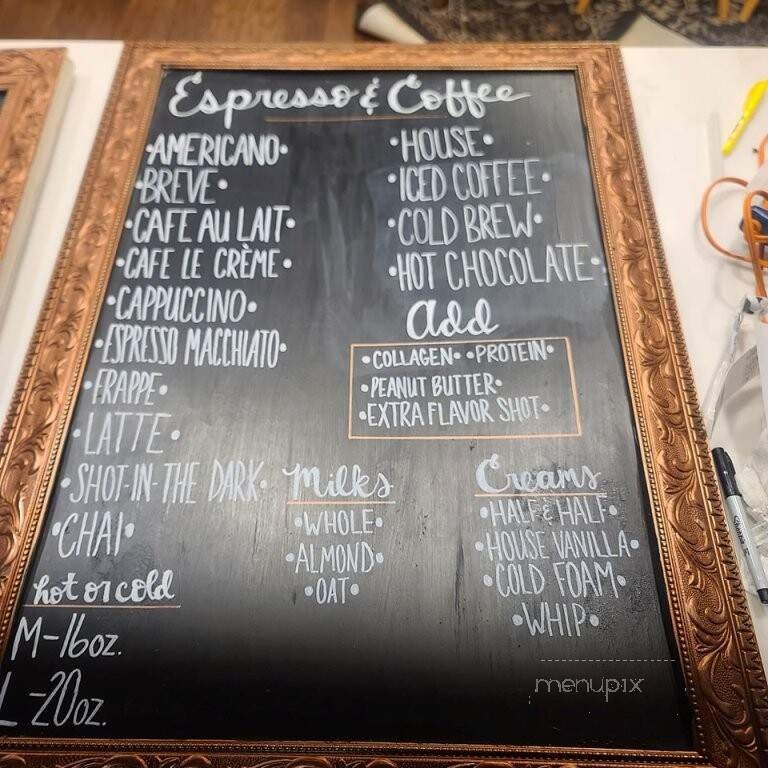 Espresso & Coffee
•AMERICANO•
•BREVE•
•CAFE AU LAIT•
•CAFE LE CRÈME•
•CAPPUCCINO•
•ESPRESSO MACCHIATO•
•FRAPPE•
•LATTE•
•SHOT-IN-THE DARK•
•CHAI•
hot or cold
M-16oz.
L-20oz.
•HOUSE•
•ICED COFFEE•
•COLD BREW•
•HOT CHOCOLATE•
add
•COLLAGEN• •PROTEIN•
•PEANUT BUTTER•
•EXTRA FLAVOR SHOT•
Milks
•WHOLE•
•ALMOND•
•OAT•
Creams
•HALF & HALF•
•HOUSE VANILLA•
COLD FOAM•
•WHIP•
menupix